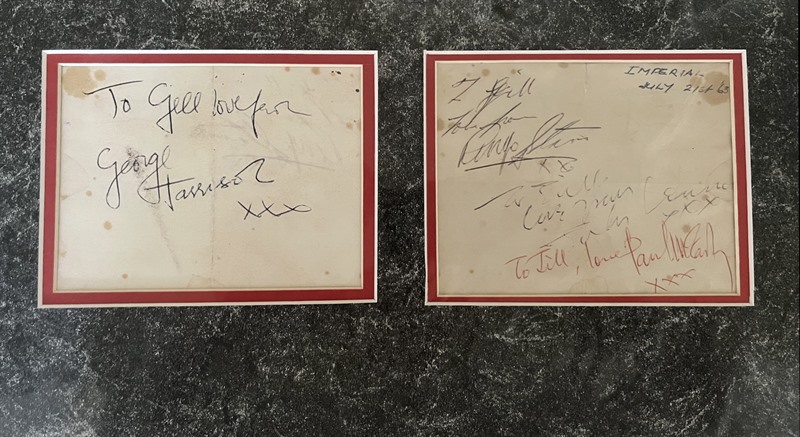 To Gill love from
George
Harrison
xxx
IMPERIAL
JULY 21st 63
To Gill
love from
Ringo Starr
xx
To Gill
love from
John
xxx
To Jill, love Paul McCartney
xxx